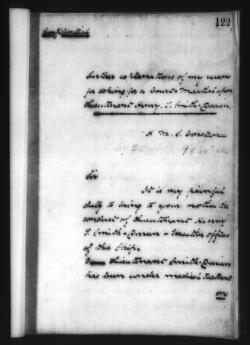 122
Confidential
Further explanations of my reasons
for asking for a Court Martial upon
Lieutenant Henry T. Smith-Dorrien
H. M. S.
9
Sir
It is my painful
duty to bring to your notice the
conduct of Lieutenant Henry
T. Smith-Dorrien - Executive officer
of this Ship.
Lieutenant Smith-Dorrien
has been under medical treatment